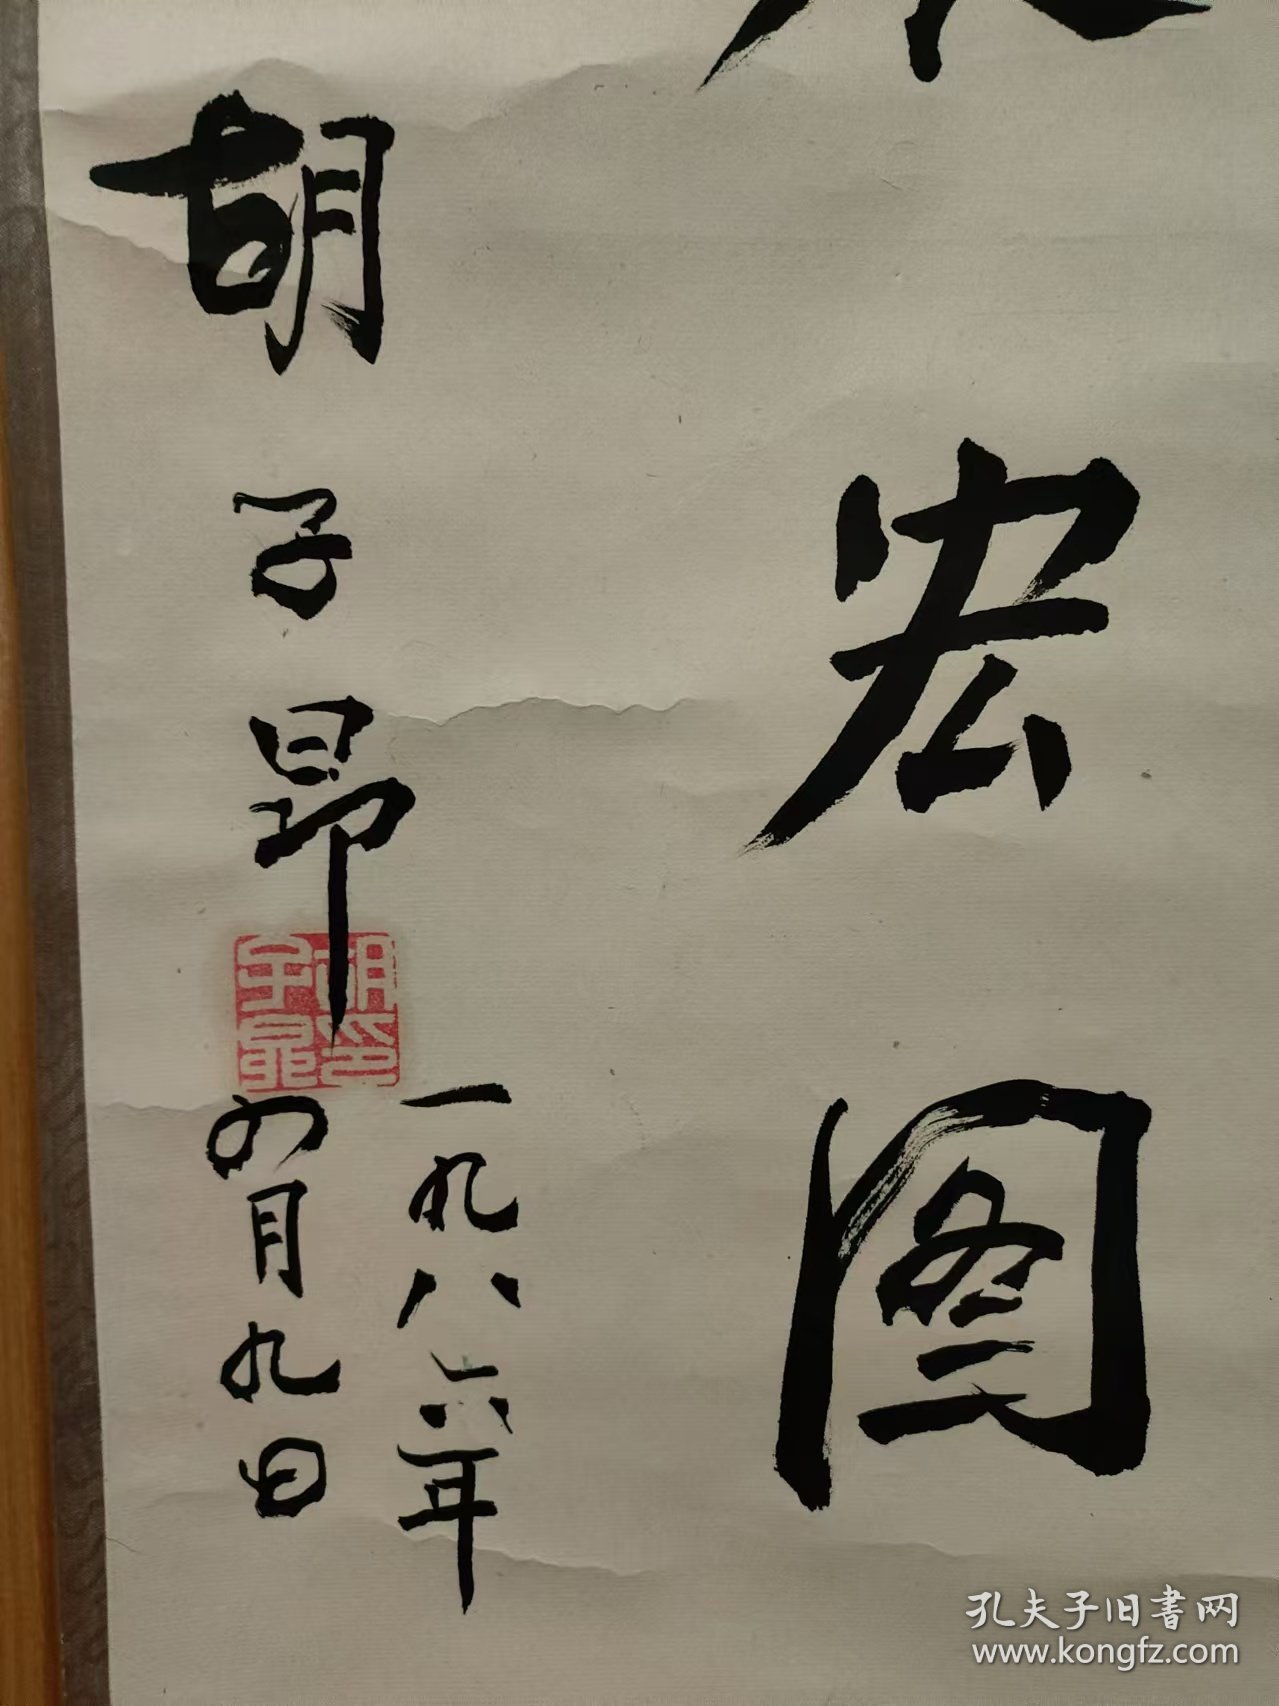 宏图
胡子昂
一九八六年
四月九日
胡子昂印
孔夫子旧書网
www.kongfz.com